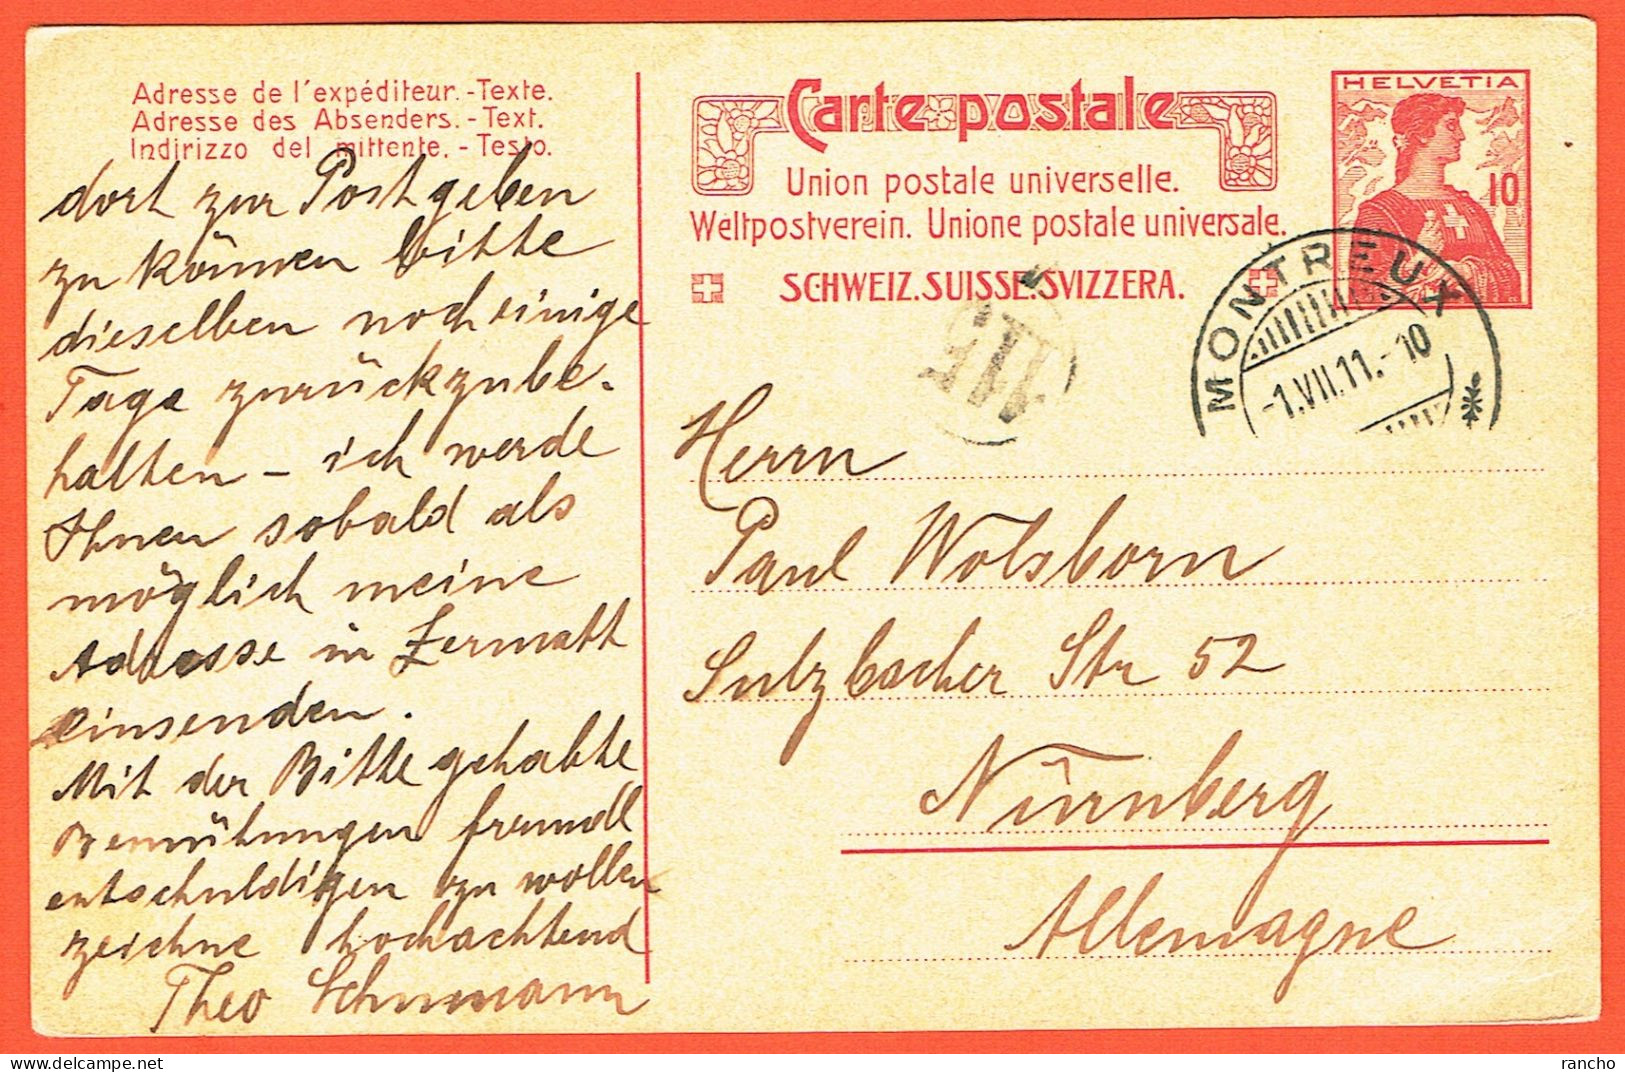 Adresse de l'expéditeur.-Texte.
Adresse des Absenders.-Text.
Indirizzo del mittente.-Testo.
dort zur Post geben
zu können bitte
dieselben noch einige
Tage zurückzube-
halten – ich werde
Ihnen sobald als
möglich meine
Adresse in Zermatt
einsenden.
Mit der Bitte gehabte
Bemühungen freundl
entschuldigen zu wollen
zeichne hochachtend
Theo Schumann
Carte postale
Union postale universelle.
Weltpostverein. Unione postale universale.
SCHWEIZ.SUISSE.SVIZZERA.
HELVETIA
10
MONTREUX
-1.VII.11.-10
Herrn
Paul Wolsborn
Sulzbacher Str 52
Nürnberg
Allemagne
rancho